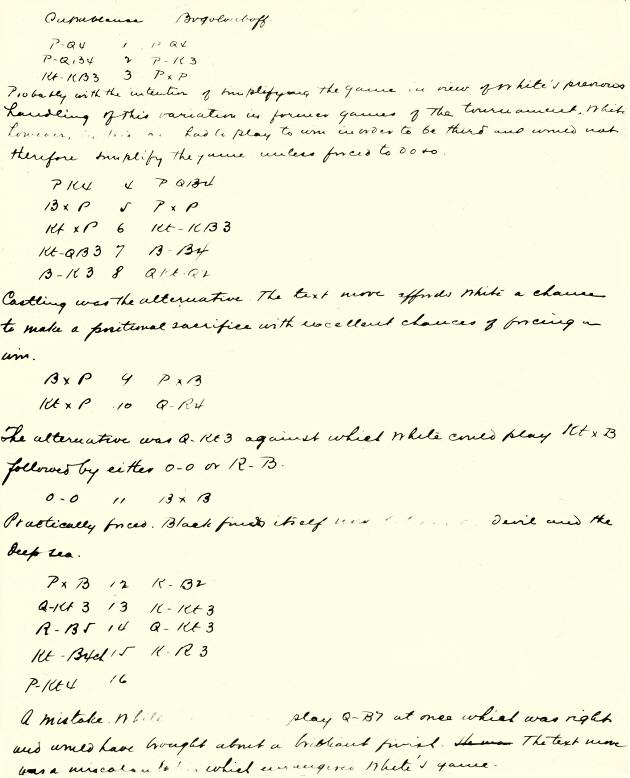 Capablanca Bogoljuboff
P-Q4 1 P Q4
P-QB4 2 P-K3
Kt-KB3 3 P x P
Probably with the intention of simplifying the game in view of White's previous
handling of this variation in former games of the tournament. White
however, had to play to win in order to be third and would not
therefore simplify the game unless forced to do so.
P K4 4 P QB4
B x P 5 P x P
Kt x P 6 Kt-KB3
Kt-QB3 7 B-B4
B-K3 8 QKt-Q2
Castling was the alternative. The text move affords White a chance
to make a positional sacrifice with excellent chances of forcing a
win.
B x P 9 P x B
Kt x P 10 Q-R4
The alternative was Q-Kt3 against which White could play Kt x B
followed by either 0-0 or R-B.
0-0 11 B x B
Practically forced. Black finds itself devil and the
deep sea.
P x B 12 K-B2
Q-Kt3 13 K-Kt3
R-B5 14 Q-Kt3
Kt-B4ch 15 K-R3
P-Kt4 16
A mistake. White play Q-B7 at once which was right
and would have brought about a brilliant finish. The text move
was a which endangered White's game.